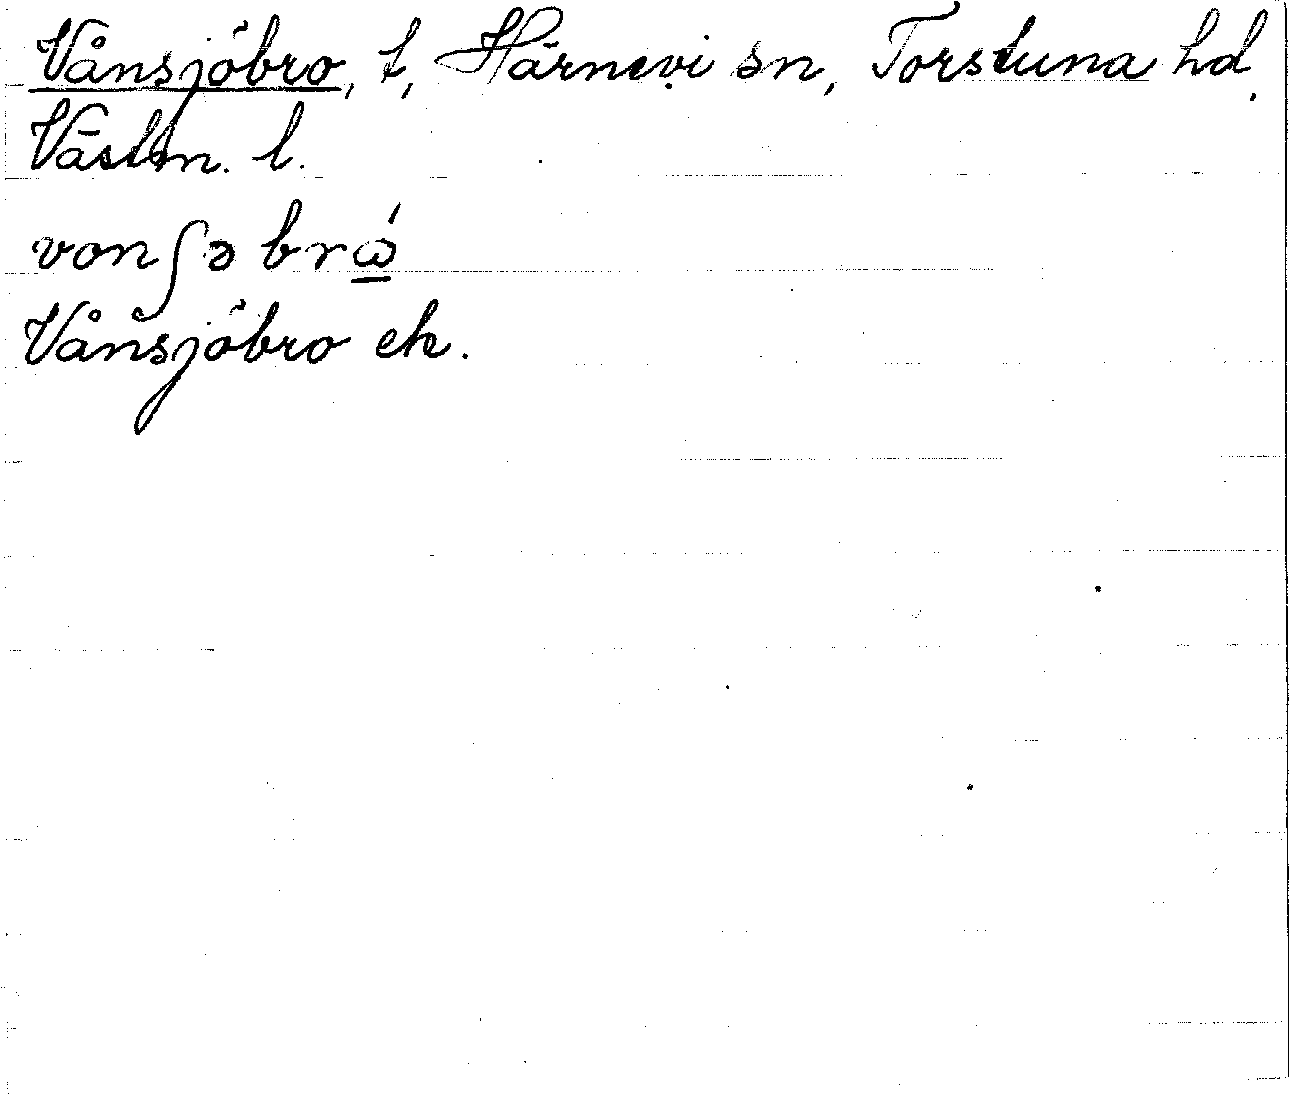 Vånsjöbro, t, Härnevi sn, Torstuna hd,
Västm. l.
vonʃə brώ̲
Vånsjöbro ek.